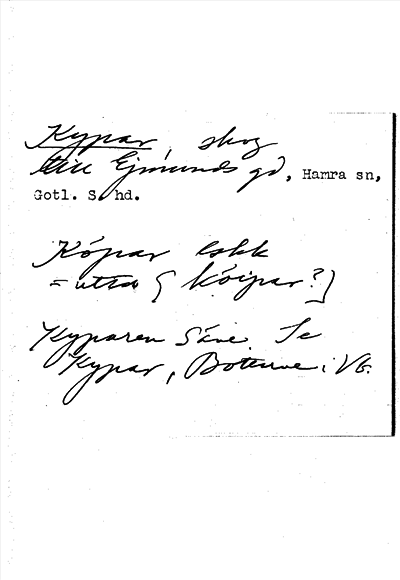 Kypar, skog
till Ejmunds gd, Hamra sn,
Gotl. S. hd.
Kópar lskk
= uttal [kóipar?]
Kyparen Säve. Se
Kypar, Botarve i Vg.